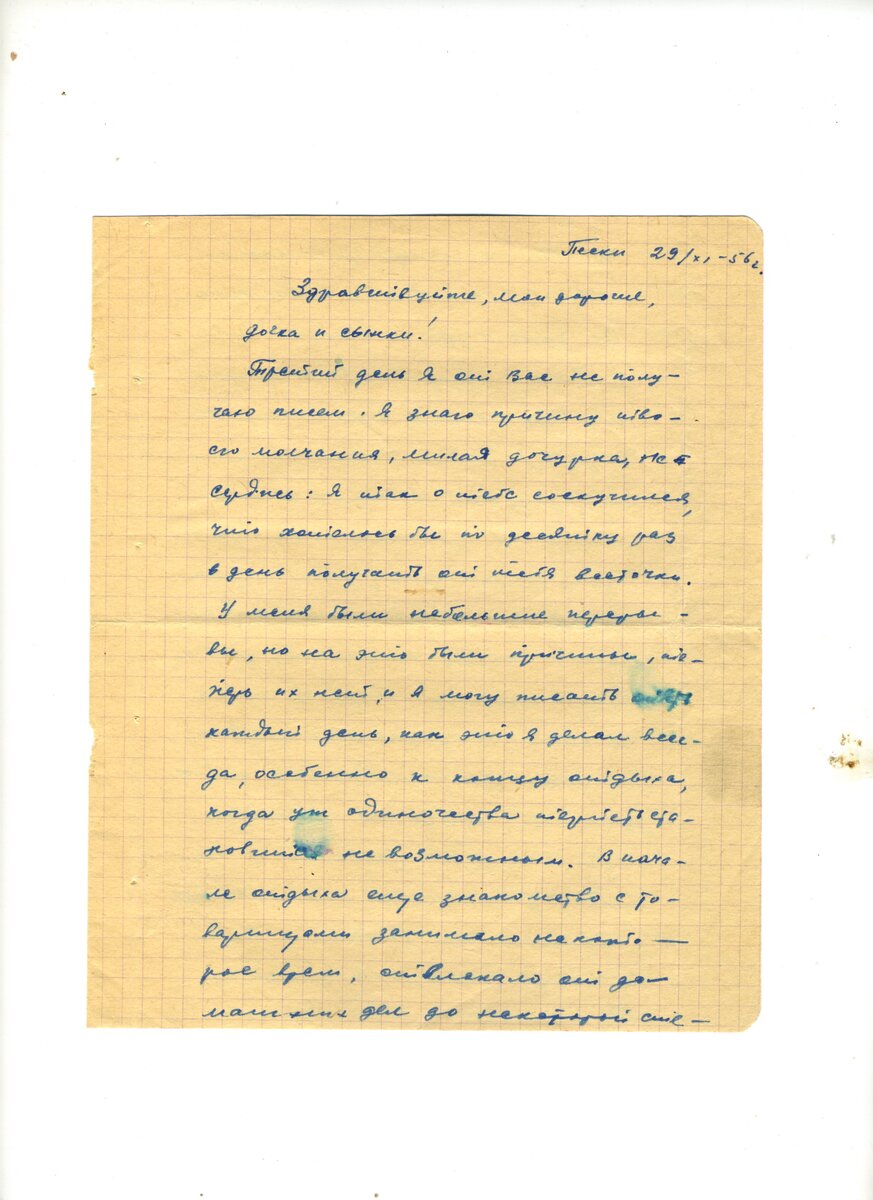 Пески 29/XI-56г.
Здравствуйте, мои дорогие,
дочка и сынки!
Третий день я от Вас не полу-
чаю писем. Я знаю причину тво-
его молчания, милая дочурка, не
сердись: я так о тебе соскучился,
что хотелось бы по десятку раз
в день получать от тебя весточки.
У меня были небольшие переры-
вы, но на это были причины, те-
перь их нет, и я могу писать
каждый день, как это я делал всег-
да, особенно к концу отдыха,
когда уж одиночества терпеть ста-
новится не возможным. В нача-
ле отдыха еще знакомство с то-
варищами занимало некото-
рое врем, отвлекало от до-
машних дел до некоторой сте-